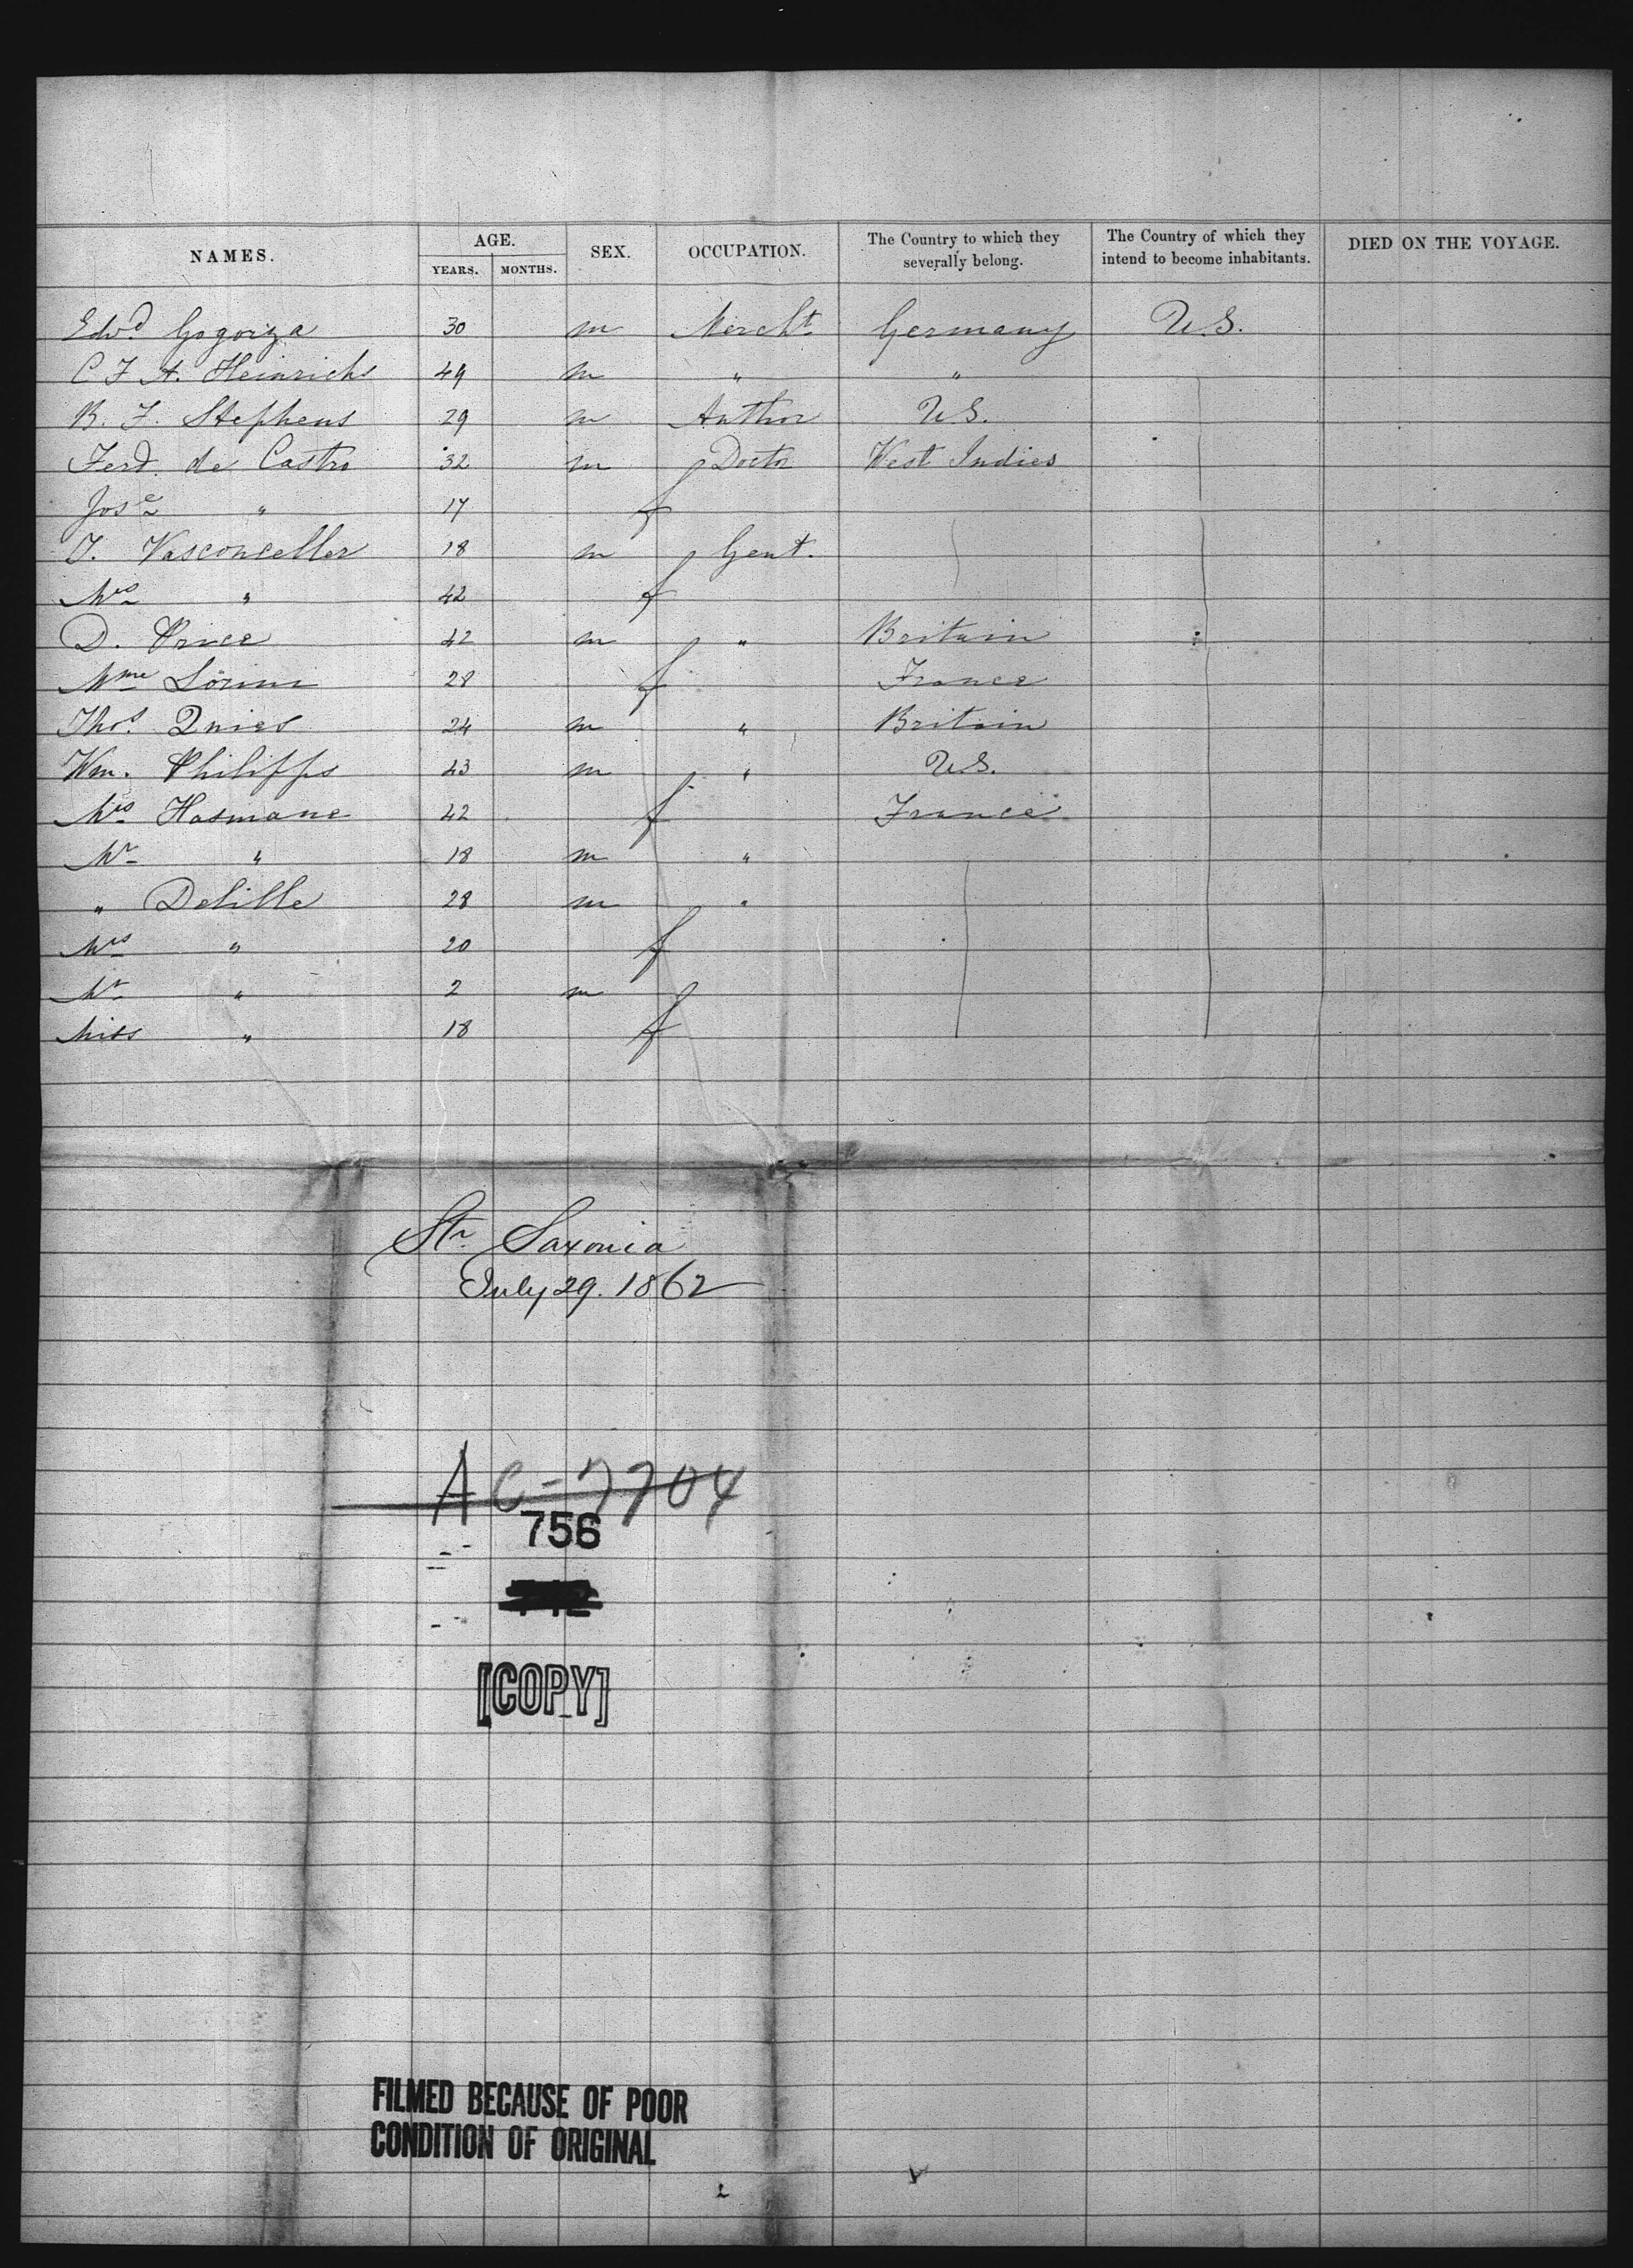 NAMES. AGE. YEARS. MONTHS. SEX. OCCUPATION. The Country to which they severally belong. The Country of which they intend to become inhabitants. DIED ON THE VOYAGE.
Edwd. Gogorza 30 m Mercht Germany U.S.
C F A. Heinrichs 49 m " "
B. F. Stephens 29 m Author U.S.
Ferd. de Castro 32 m Doctor West Indies
Jose " 17 f
J. Vasconceller 18 m Gent.
Mrs " 42 f
D. Price 42 m " Britain
Mme 28 f France
Thos. 24 m " Britain
Wm. Philipps 43 m " U.S.
Mrs Hasmane 42 f France
Mr " 18 m "
" Delille 28 m "
Mrs " 20 f
Mr " 2 m
Miss " 18 f
Str Saxonia
July 29. 1862
AC-7704
756
[COPY]
FILMED BECAUSE OF POOR
CONDITION OF ORIGINAL